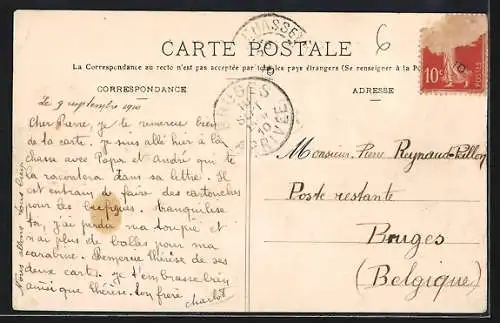 CARTE POSTALE
La Correspondance au recto n'est pas acceptée par tous les pays étrangers (Se renseigner à la
CORRESPONDANCE
ADRESSE
6
10c
BRUGES
ARRIVÉE
Le 9 septembre 1910
Cher Pierre, je te remercie bien
de ta carte. je suis allé hier à la
chasse avec Papa et André qui te
la racontera dans sa lettre. Il
est entrain de faire des cartouches
pour les tranquilise
toi, j'ai perdu ma toupie et
n'ai plus de balles pour ma
carabine. Remercie Thérèse de ses
deux cartes. je t'embrasse bien
ainsi que Thérèse. ton frère
Charlot
Nous allons tous bien
Monsieur Pierre Reynaud
Poste restante
Bruges
(Belgique)